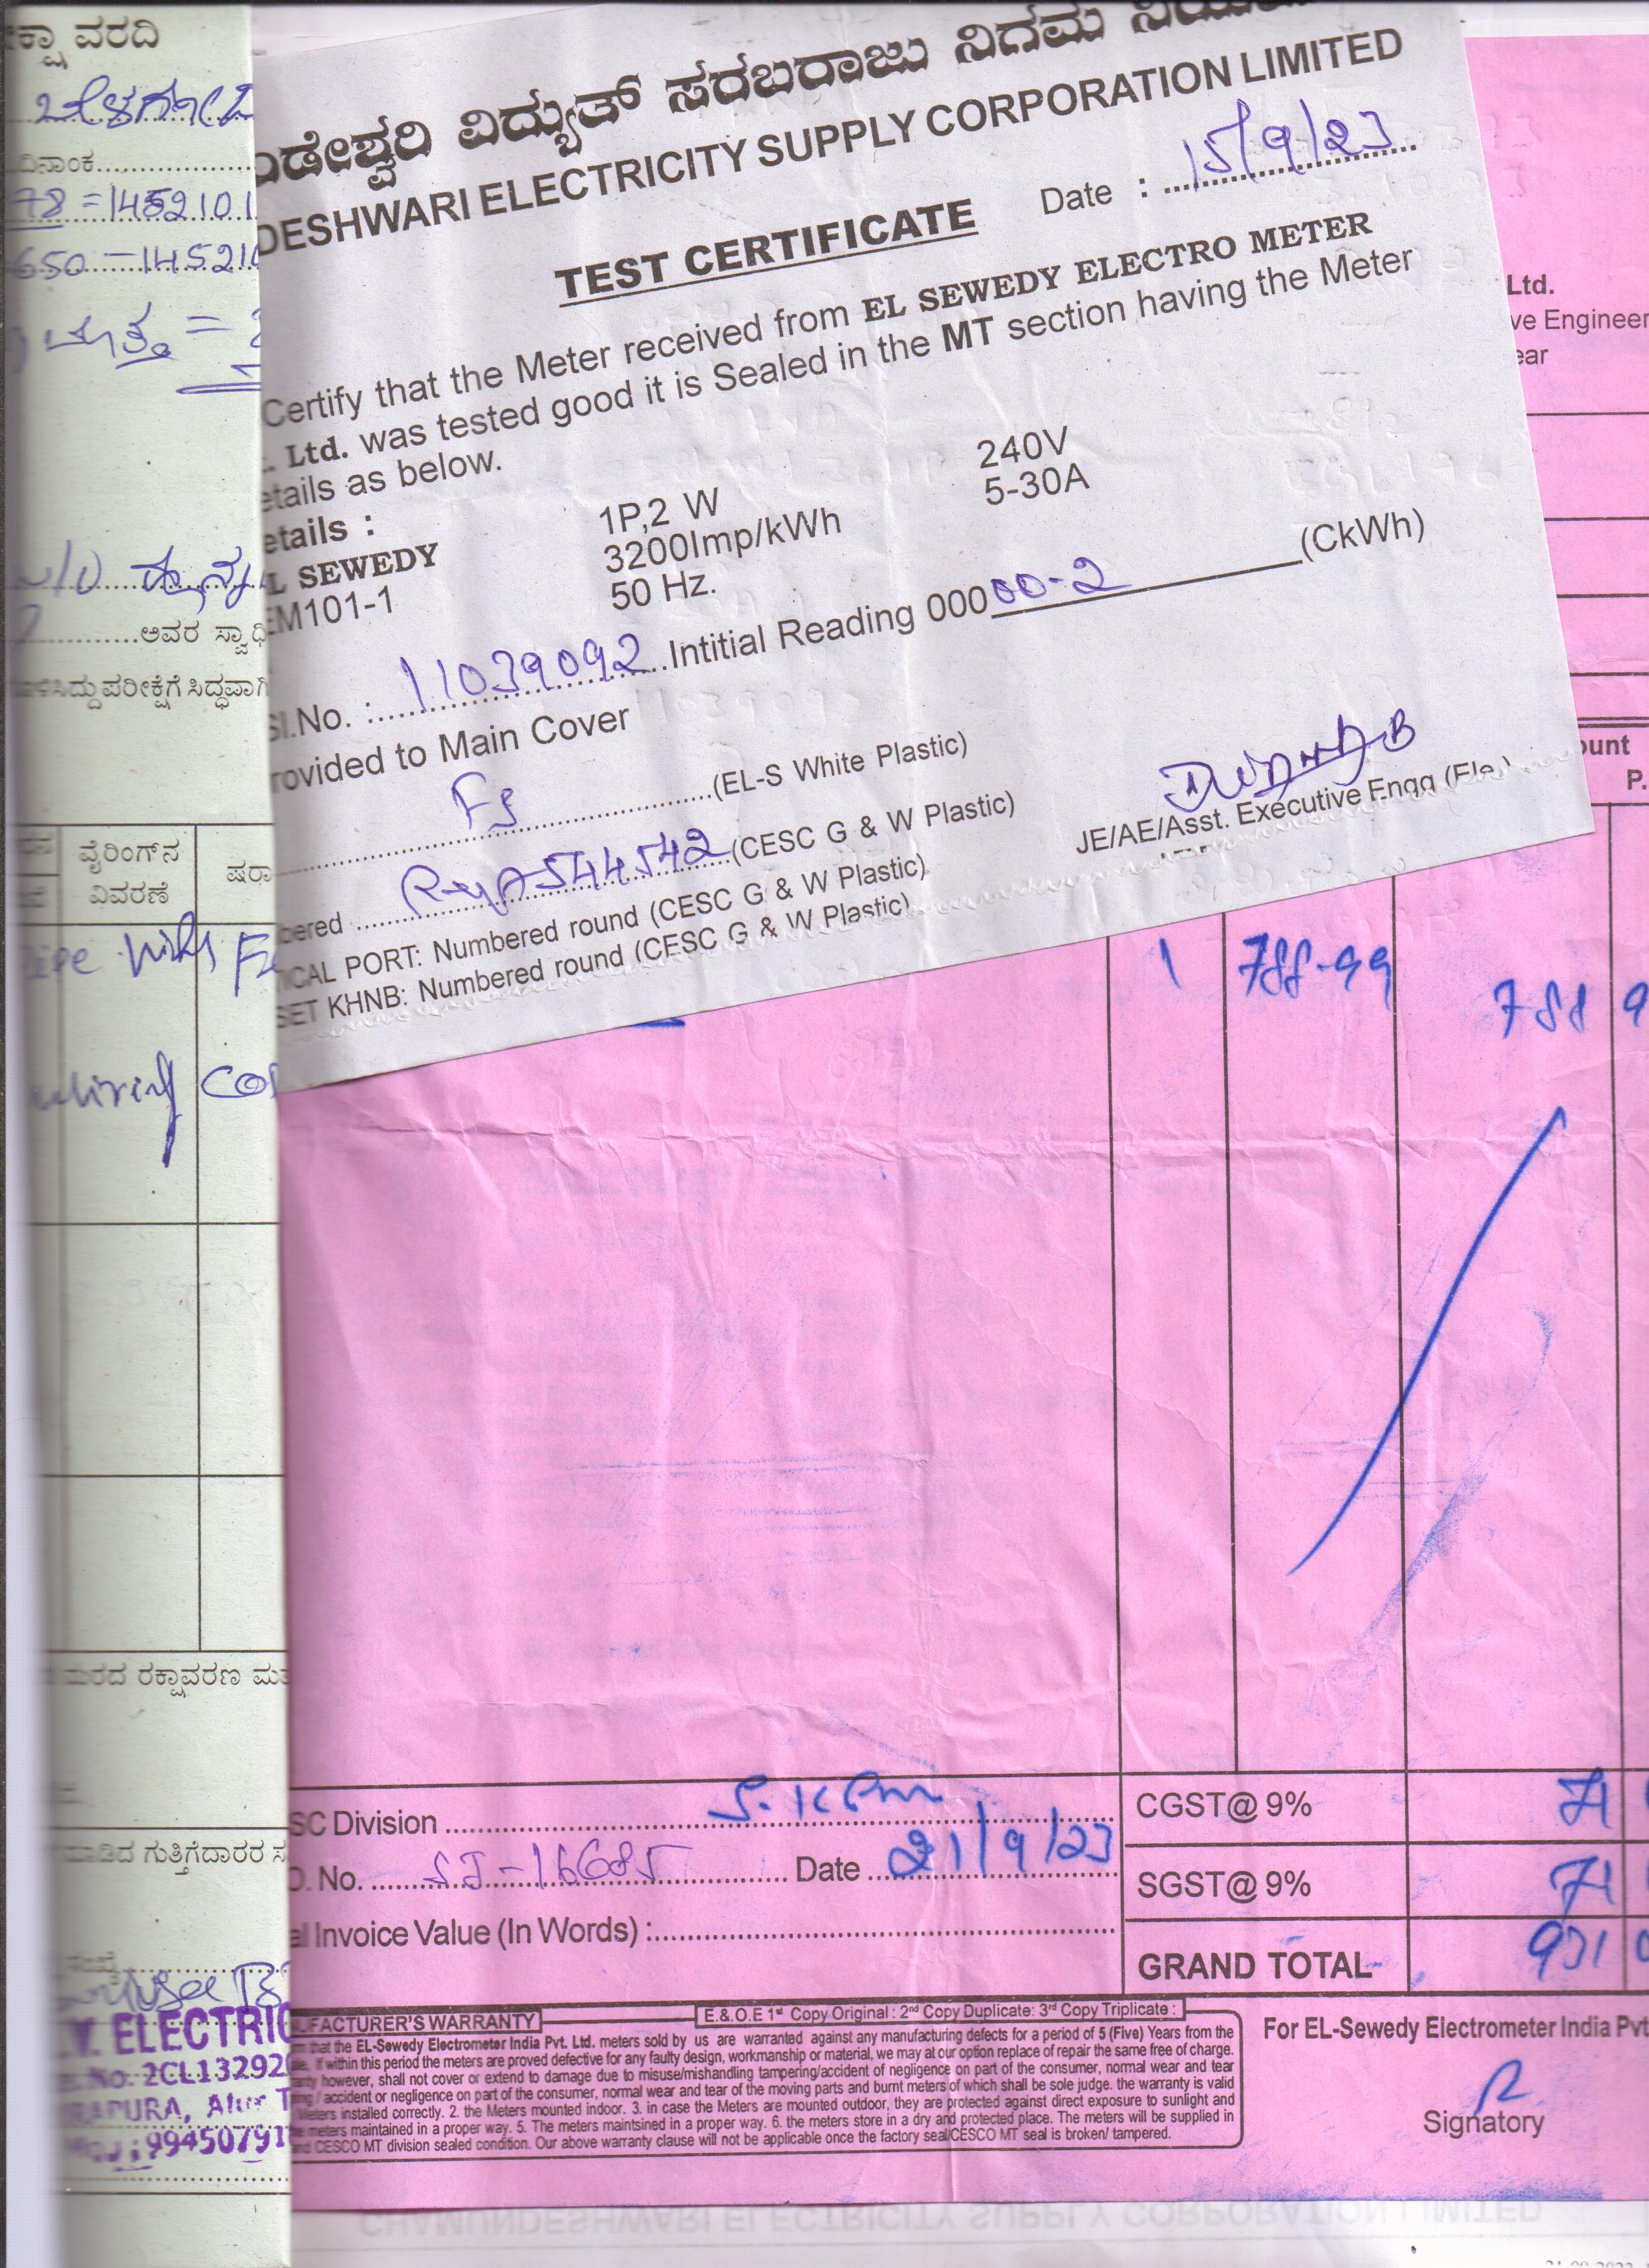 ಕ್ಷಾ ವರದಿ
ಬೆಳಗಾ
ದಿನಾಂಕ
78 = 1452101
650 - 14521
ಮತ್ತು =
ಅವರ ಸ್ವಾಧಿ
ಪರೀಕ್ಷೆಗೆ ಸಿದ್ಧವಾಗಿ
ವೈರಿಂಗ್‌ನ
ವಿವರಣೆ
ಷರಾ
ರದ ರಕ್ಷಾವರಣ ಮತ
ಮಾಡಿದ ಗುತ್ತಿಗೆದಾರರ ಸ
.V. ELECTRIC
No. 2CL13292
RAPURA, Alur T
: 99450791
ಂಡೇಶ್ವರಿ ವಿದ್ಯುತ್ ಸರಬರಾಜು ನಿಗಮ
DESHWARI ELECTRICITY SUPPLY CORPORATION LIMITED
Date : 15/9/23
TEST CERTIFICATE
Certify that the Meter received from EL SEWEDY ELECTRO METER
. Ltd. was tested good it is Sealed in the MT section having the Meter
etails as below.
etails :
L SEWEDY 1P,2 W 240V
EM101-1 3200Imp/kWh 5-30A
50 Hz.
Sl.No. : 11039092 Intitial Reading 000 00-2 (CkWh)
rovided to Main Cover
FS (EL-S White Plastic)
bered A544542 (CESC G & W Plastic)
ICAL PORT: Numbered round (CESC G & W Plastic)
SET KHNB: Numbered round (CESC G & W Plastic)
JE/AE/Asst. Executive Engg (Ele.)
Ltd.
ve Engineer
ear
ount
P.
1 788-99 788 9
SC Division
CGST@ 9% 71
O. No. SJ-16685 Date 21/9/23
SGST@ 9% 71
al Invoice Value (In Words) :
GRAND TOTAL 931 0
UFACTURER'S WARRANTY
E. & O.E 1st Copy Original : 2nd Copy Duplicate: 3rd Copy Triplicate :
m that the EL-Sewedy Electrometer India Pvt. Ltd. meters sold by us are warranted against any manufacturing defects for a period of 5 (Five) Years from the
e. If within this period the meters are proved defective for any faulty design, workmanship or material, we may at our option replace of repair the same free of charge.
anty however, shall not cover or extend to damage due to misuse/mishandling tampering/accident of negligence on part of the consumer, normal wear and tear
ing / accident or negligence on part of the consumer, normal wear and tear of the moving parts and burnt meters of which shall be sole judge. the warranty is valid
Meters installed correctly. 2. the Meters mounted indoor. 3. in case the Meters are mounted outdoor, they are protected against direct exposure to sunlight and
e meters maintained in a proper way. 5. The meters maintsined in a proper way. 6. the meters store in a dry and protected place. The meters will be supplied in
nd CESCO MT division sealed condition. Our above warranty clause will not be applicable once the factory seal/CESCO MT seal is broken/ tampered.
For EL-Sewedy Electrometer India Pvt
Signatory
CHAMUNDESHWARI ELECTRICITY SUPPLY CORPORATION LIMITED